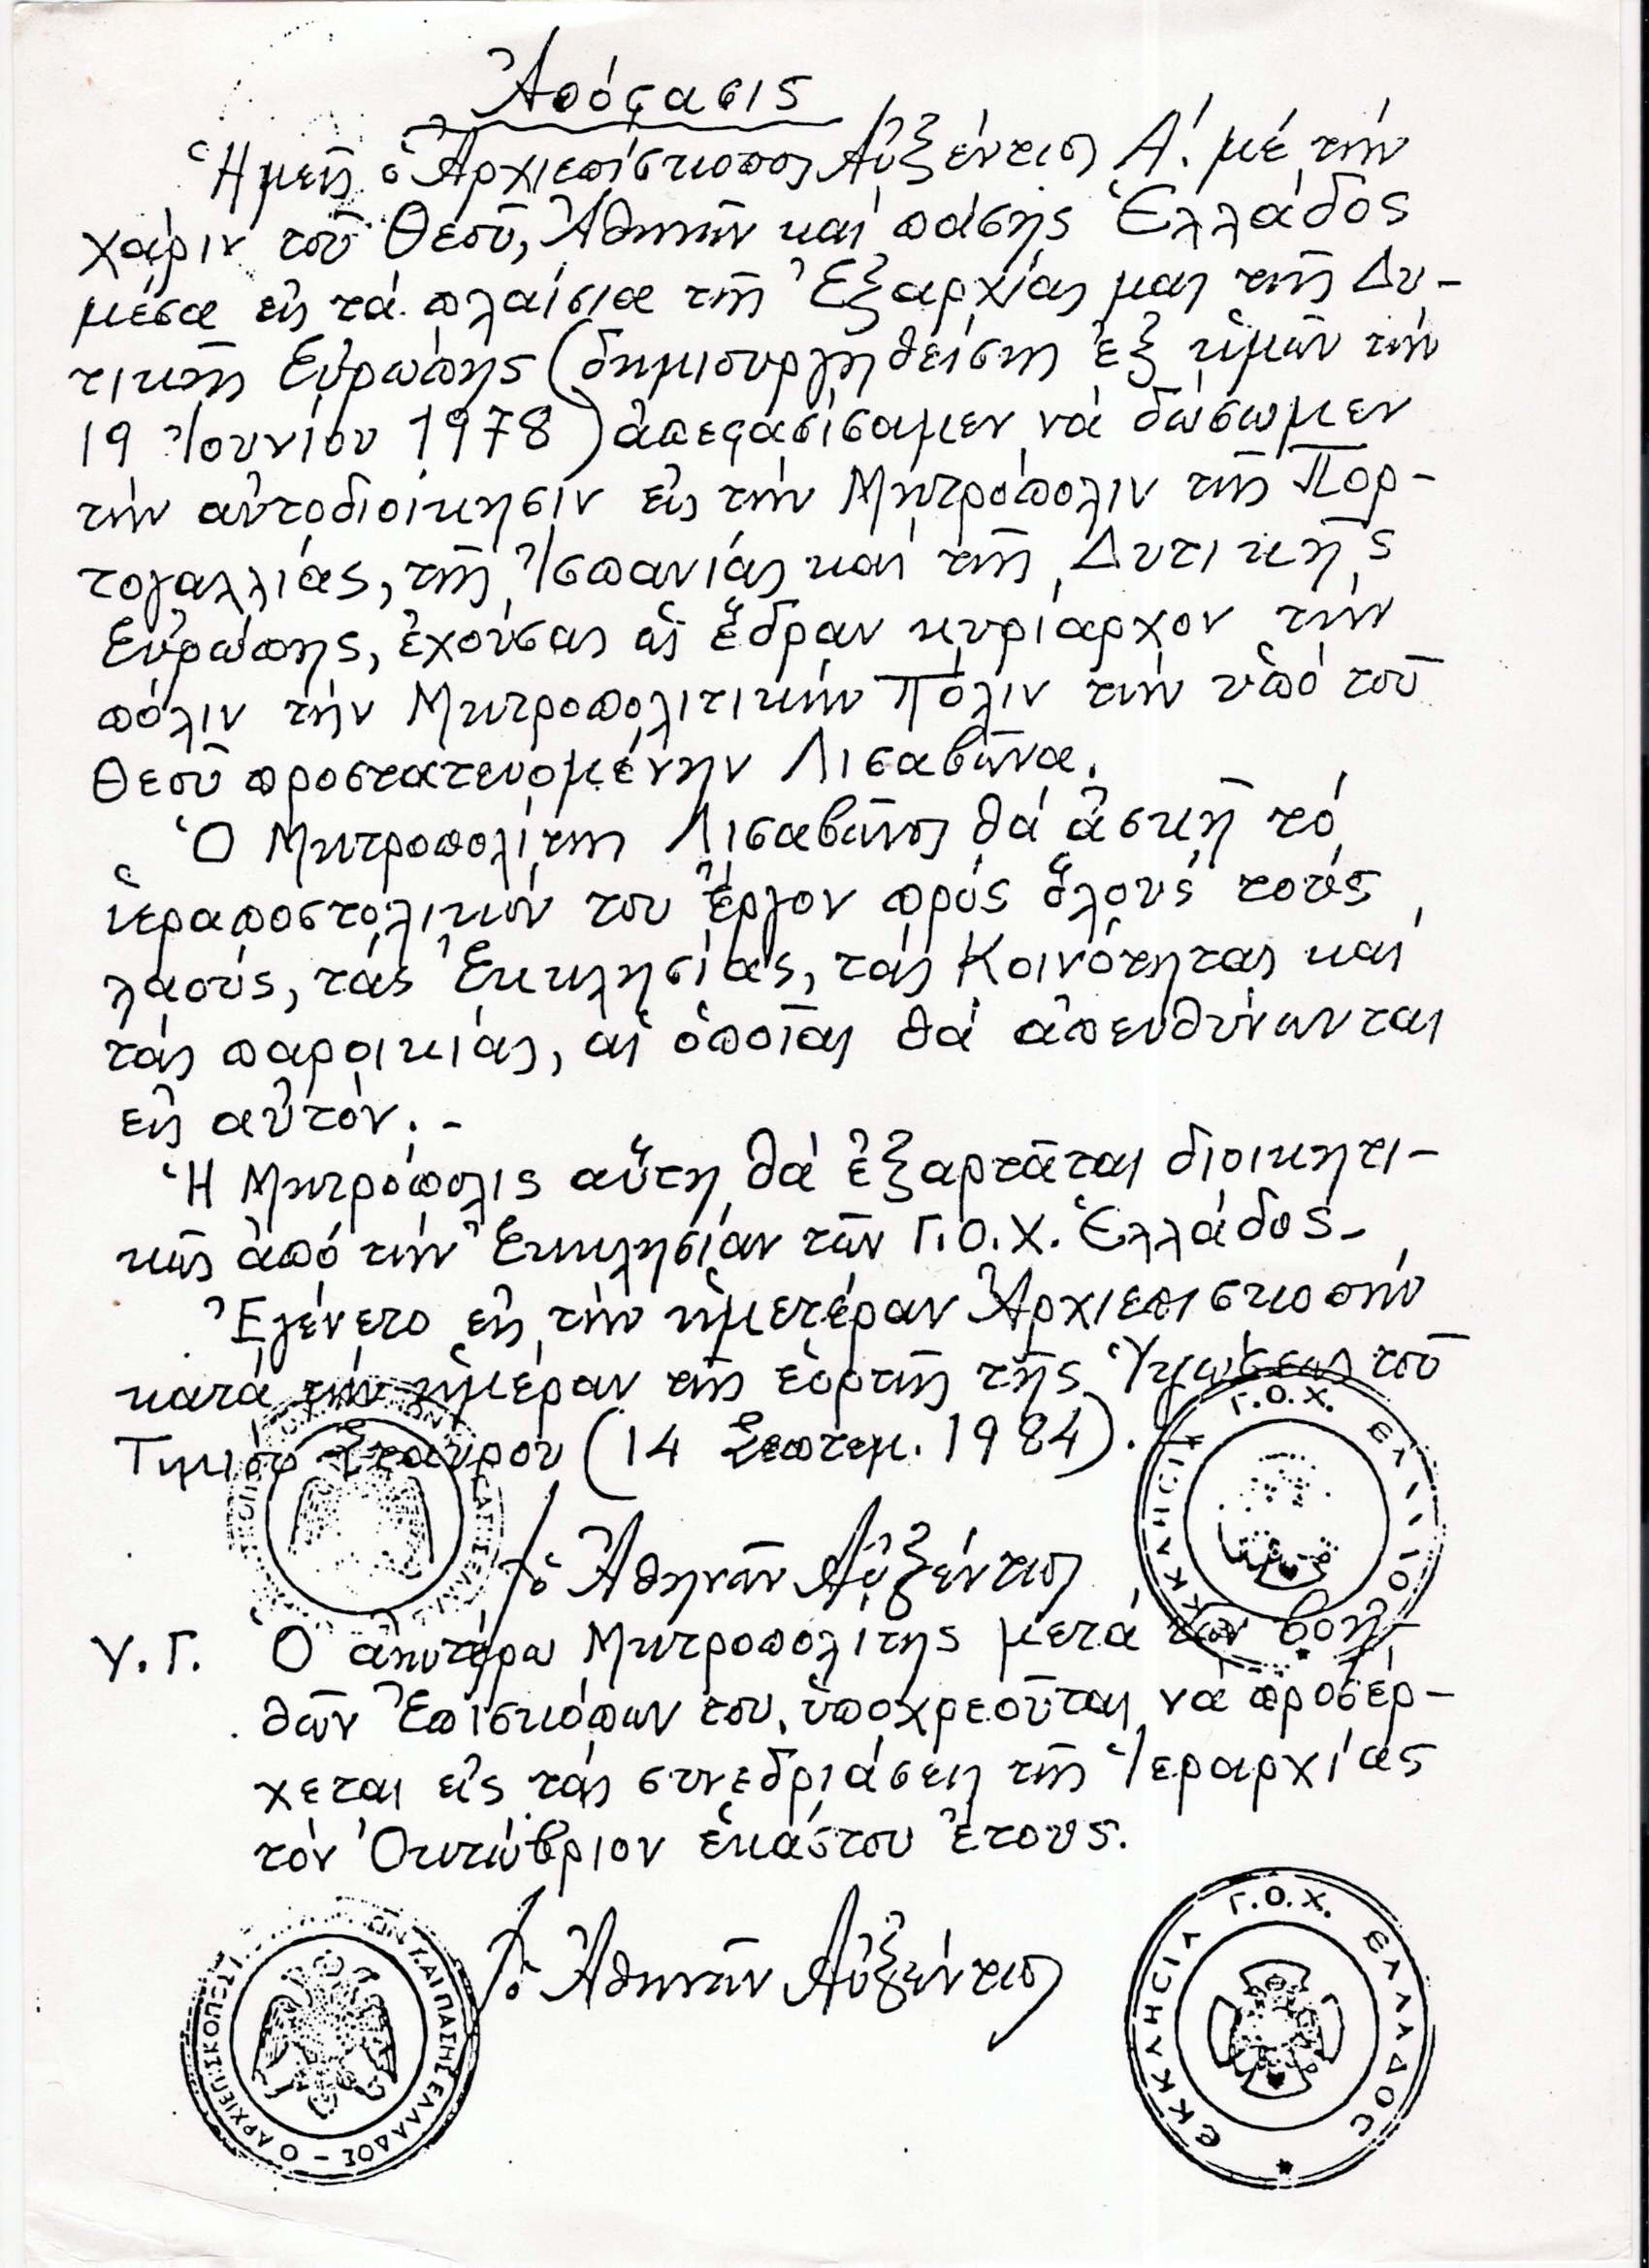 Ἀπόφασις
Ἡμεῖς ὁ Ἀρχιεπίσκοπος Αὐξέντιος Α΄. μέ τήν
χάριν τοῦ Θεοῦ, Ἀθηνῶν καί πάσης Ἑλλάδος
μέσα εἰς τά πλαίσια τῆς Ἐξαρχίας μας τῆς Δυ-
τικῆς Εὐρώπης (δημιουργηθείσης ἐξ ἡμῶν τήν
19 Ἰουνίου 1978) ἀπεφασίσαμεν νά δώσωμεν
τήν αὐτοδιοίκησιν εἰς τήν Μητρόπολιν τῆς Πορ-
τογαλλίας, τῆς Ἰσπανίας καί τῆς Δυτικῆς
Εὐρώπης, ἐχούσας ὡς ἕδραν κυρίαρχον τήν
πόλιν τήν Μητροπολιτικήν Πόλιν τήν ὑπό τοῦ
Θεοῦ προστατευομένην Λισαβῶνα.
Ὁ Μητροπολίτης Λισαβῶνος θά ἀσκῇ τό
ἱεραποστολικόν του ἔργον πρός ὅλους τούς
λαούς, τάς Ἐκκλησίας, τάς Κοινότητας καί
τάς παροικίας, αἱ ὁποῖαι θά ἀπευθύνωνται
εἰς αὐτόν. -
Ἡ Μητρόπολις αὕτη θά ἐξαρτᾶται διοικητι-
κῶς ἀπό τήν Ἐκκλησίαν τῶν Γ.Ο.Χ. Ἑλλάδος-
Ἐγένετο εἰς τήν ἡμετέραν Ἀρχιεπισκοπήν
κατά τήν ἡμέραν τῆς ἑορτῆς τῆς Ὑψώσεως τοῦ
Τιμίου Σταυροῦ (14 Σεπτεμ. 1984).
ὁ Ἀθηνῶν Αὐξέντιος
Υ.Γ. Ὁ ἀνωτέρω Μητροπολίτης μετά τῶν βοη-
θῶν Ἐπισκόπων του, ὑποχρεοῦται νά προσέρ-
χεται εἰς τάς συνεδριάσεις τῆς Ἱεραρχίας
τόν Ὀκτώβριον ἑκάστου ἔτους.
ὁ Ἀθηνῶν Αὐξέντιος
Ο ΑΡΧΙΕΠΙΣΚΟΠΟΣ ΠΑΣΗΣ ΕΛΛΑΔΟΣ -
ΕΚΚΛΗΣΙΑ Γ.Ο.Χ. ΕΛΛΑΔΟΣ